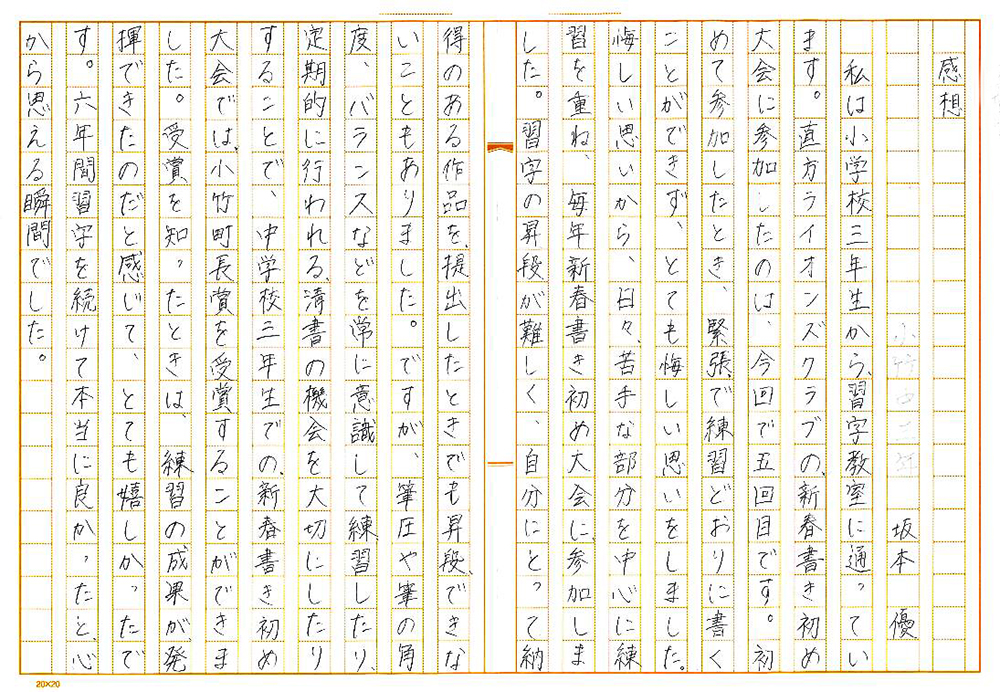 感想
坂本　優
私は小学校三年生から、習字教室に通ってい
ます。直方ライオンズクラブの、新春書き初め
大会に参加したのは、今回で五回目です。初
めて参加したとき、緊張で練習どおりに書く
ことができず、とても悔しい思いをしました。
悔しい思いから、日々、苦手な部分を中心に練
習を重ね、毎年新春書き初め大会に、参加しま
した。習字の昇段が難しく、自分にとって納
得のある作品を、提出したときでも昇段、できな
いこともありました。ですが、筆圧や筆の角
度、バランスなどを常に意識して練習したり、
定期的に行われる、清書の機会を大切にしたり
することで、中学校三年生での、新春書き初め
大会では、小竹町長賞を受賞することができま
した。受賞を知ったときは、練習の成果が、発
揮できたのだと感じて、とても嬉しかったで
す。六年間習字を続けて本当に良かったと、心
から思える瞬間でした。
20×20